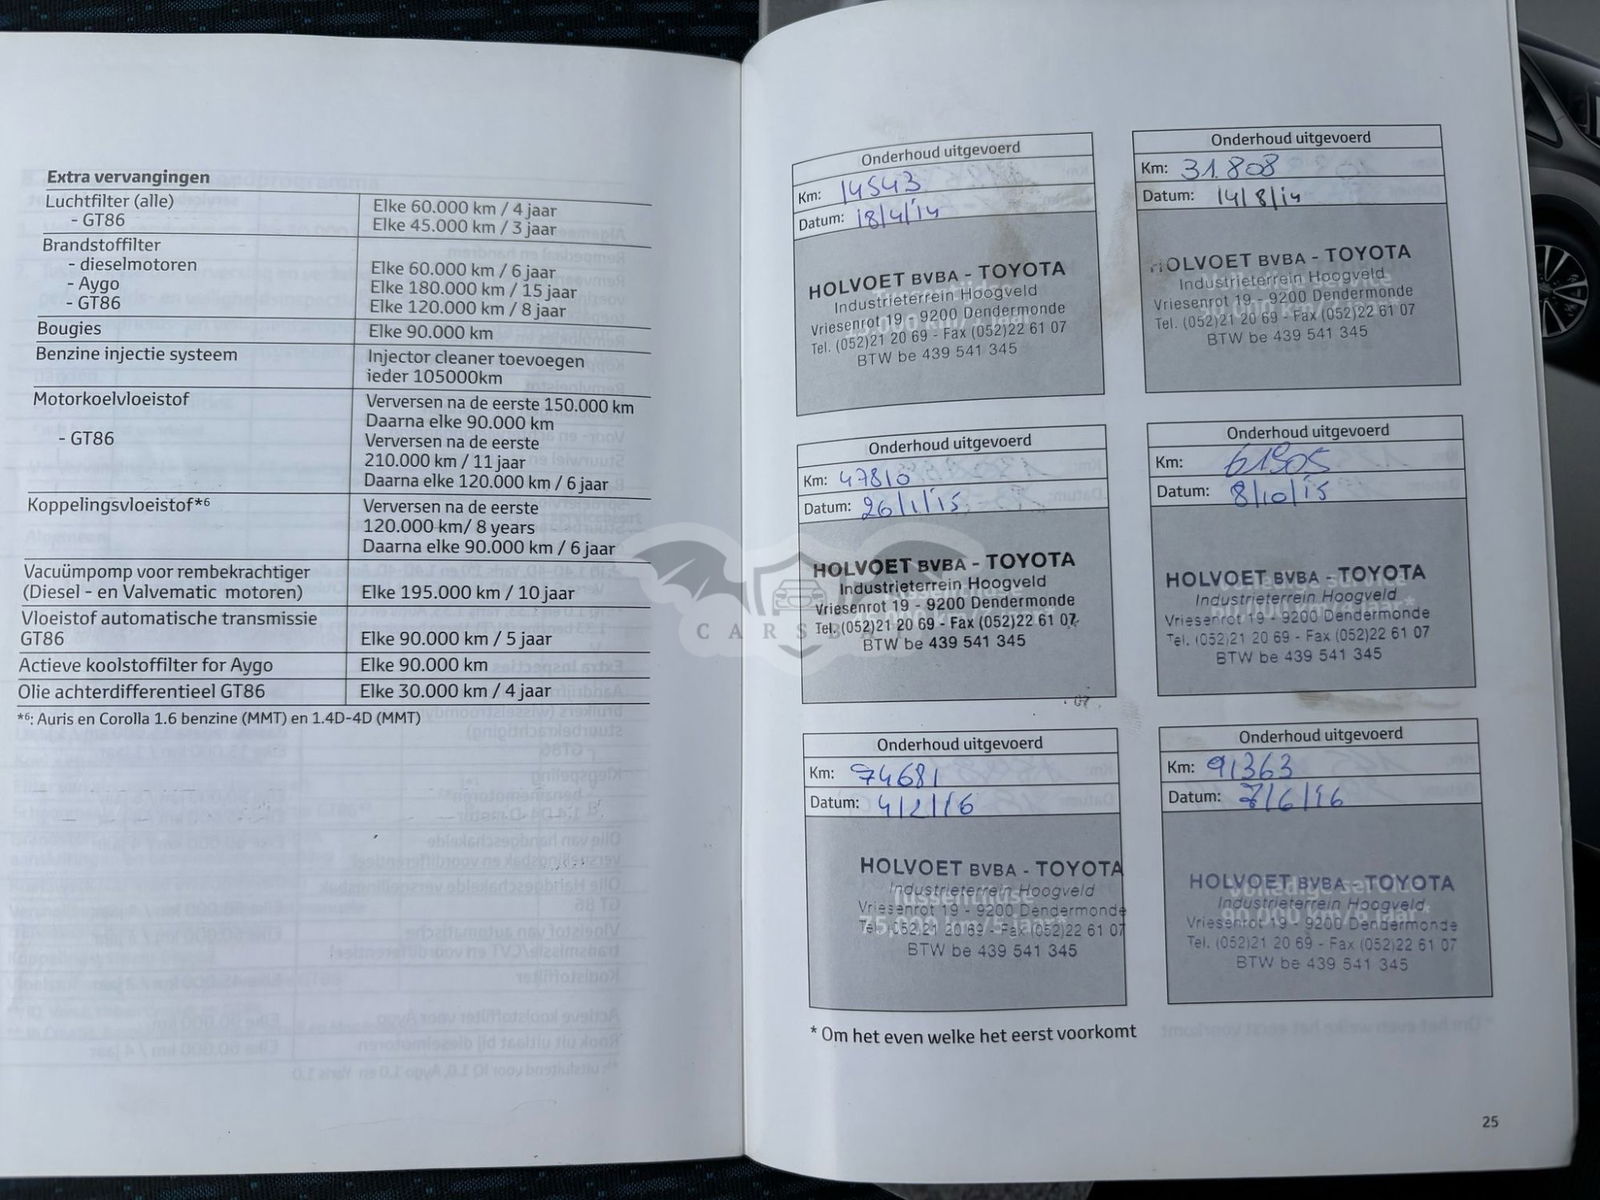 Extra vervangingen
Luchtfilter (alle) Elke 60.000 km / 4 jaar
- GT86 Elke 45.000 km / 3 jaar
Brandstoffilter
- dieselmotoren Elke 60.000 km / 6 jaar
- Aygo Elke 180.000 km / 15 jaar
- GT86 Elke 120.000 km / 8 jaar
Bougies Elke 90.000 km
Benzine injectie systeem Injector cleaner toevoegen
ieder 105000km
Motorkoelvloeistof Verversen na de eerste 150.000 km
Daarna elke 90.000 km
- GT86 Verversen na de eerste
210.000 km / 11 jaar
Daarna elke 120.000 km / 6 jaar
Koppelingsvloeistof*6 Verversen na de eerste
120.000 km/ 8 years
Daarna elke 90.000 km / 6 jaar
Vacuümpomp voor rembekrachtiger
(Diesel - en Valvematic motoren) Elke 195.000 km / 10 jaar
Vloeistof automatische transmissie
GT86 Elke 90.000 km / 5 jaar
Actieve koolstoffilter for Aygo Elke 90.000 km
Olie achterdifferentieel GT86 Elke 30.000 km / 4 jaar
*6: Auris en Corolla 1.6 benzine (MMT) en 1.4D-4D (MMT)
Onderhoud uitgevoerd
Km: 14543
Datum: 18/4/14
HOLVOET BVBA - TOYOTA
Industrieterrein Hoogveld
Vriesenrot 19 - 9200 Dendermonde
Tel. (052)21 20 69 - Fax (052)22 61 07
BTW be 439 541 345
Onderhoud uitgevoerd
Km: 31.808
Datum: 14/8/14
HOLVOET BVBA - TOYOTA
Industrieterrein Hoogveld
Vriesenrot 19 - 9200 Dendermonde
Tel. (052)21 20 69 - Fax (052)22 61 07
BTW be 439 541 345
Onderhoud uitgevoerd
Km: 47810
Datum: 26/1/15
HOLVOET BVBA - TOYOTA
Industrieterrein Hoogveld
Vriesenrot 19 - 9200 Dendermonde
Tel. (052)21 20 69 - Fax (052)22 61 07
BTW be 439 541 345
Onderhoud uitgevoerd
Km: 61905
Datum: 8/10/15
HOLVOET BVBA - TOYOTA
Industrieterrein Hoogveld
Vriesenrot 19 - 9200 Dendermonde
Tel. (052)21 20 69 - Fax (052)22 61 07
BTW be 439 541 345
Onderhoud uitgevoerd
Km: 74681
Datum: 4/2/16
HOLVOET BVBA - TOYOTA
Industrieterrein Hoogveld
Vriesenrot 19 - 9200 Dendermonde
Tel. (052)21 20 69 - Fax (052)22 61 07
BTW be 439 541 345
Tussenbeurse
75.000 km/5 jaar*
Onderhoud uitgevoerd
Km: 91363
Datum: 7/6/16
HOLVOET BVBA - TOYOTA
Industrieterrein Hoogveld
Vriesenrot 19 - 9200 Dendermonde
Tel. (052)21 20 69 - Fax (052)22 61 07
BTW be 439 541 345
Volledige service
90.000 km/6 jaar*
* Om het even welke het eerst voorkomt
25